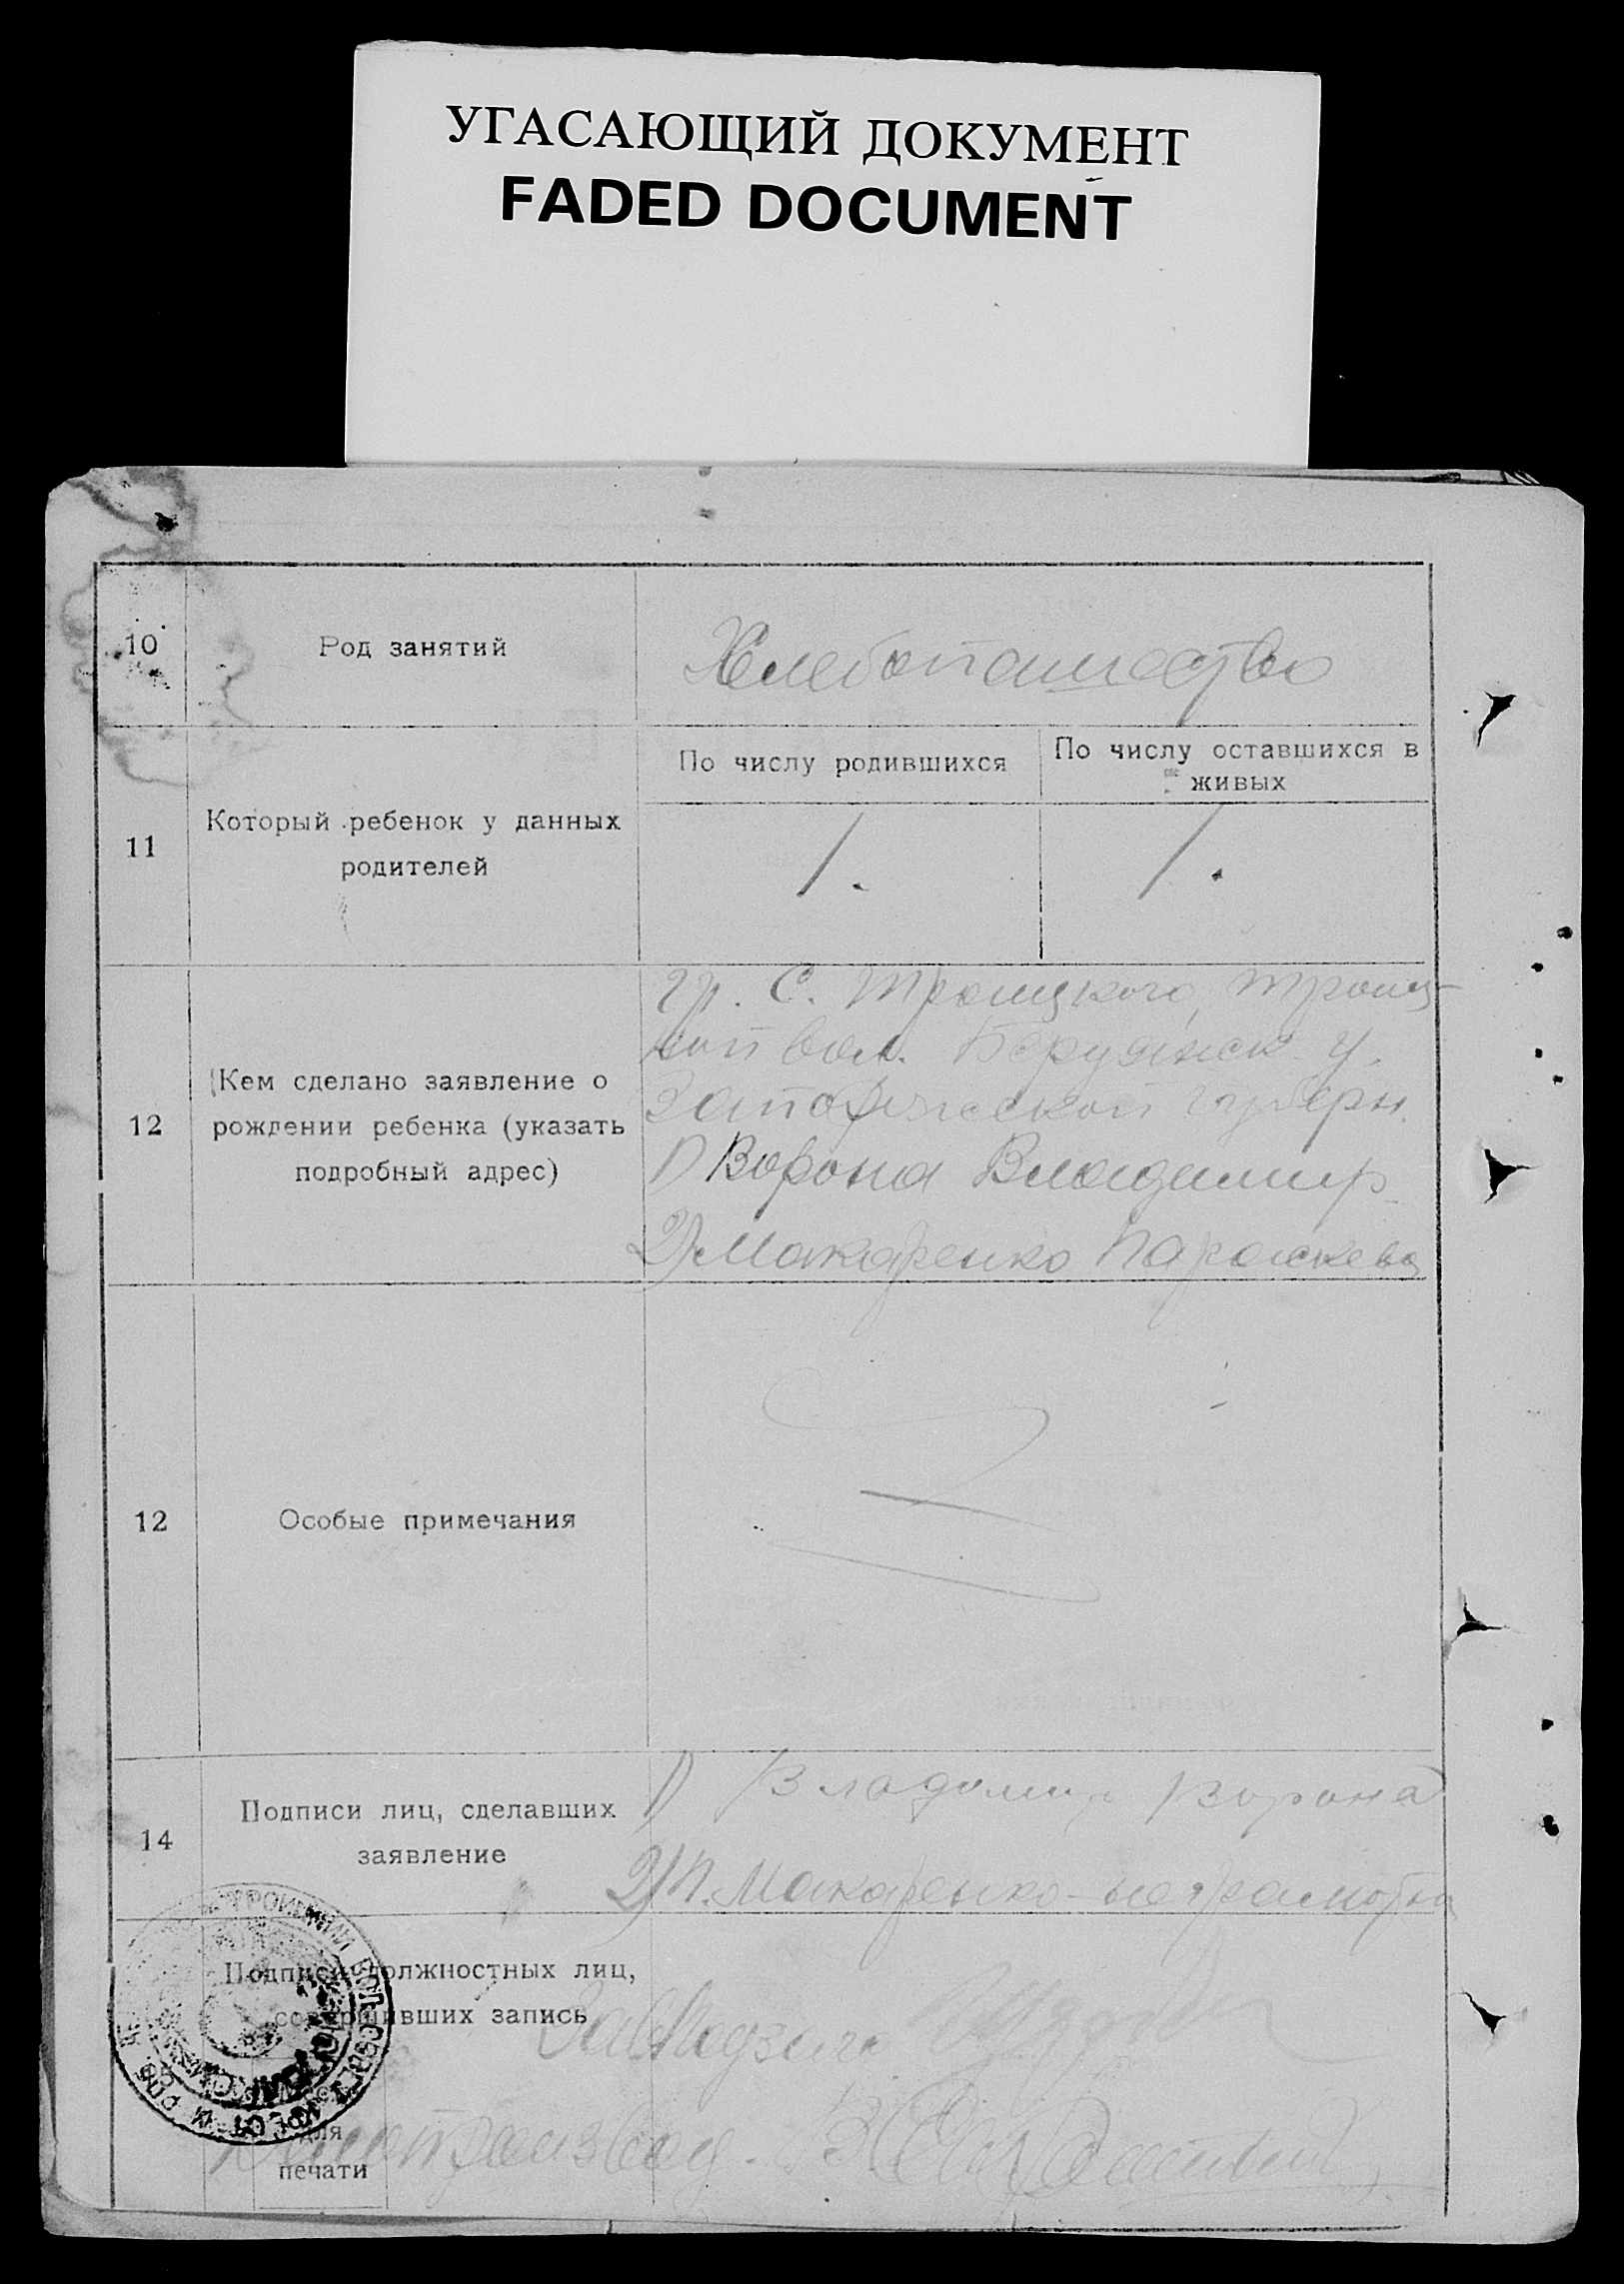 УГАСАЮЩИЙ ДОКУМЕНТ
FADED DOCUMENT
10
Род занятий
Хлебопашество
11
Который ребенок у данных
родителей
По числу родившихся
По числу оставшихся в
живых
1.
1.
12
(Кем сделано заявление о
рождении ребенка (указать
подробный адрес)
гр. С. Троицкого, Троиц-
кой вол. Бердянск у.
Запорожской губерн.
1) Ворона Владимир
2) Макаренко Параскева
12
Особые примечания
14
Подписи лиц, сделавших
заявление
1) Владимир Ворона
2) П. Макаренко - неграмотна
Подписи должностных лиц,
совершивших запись
Завподзагс
для
печати
Делопроизвод.